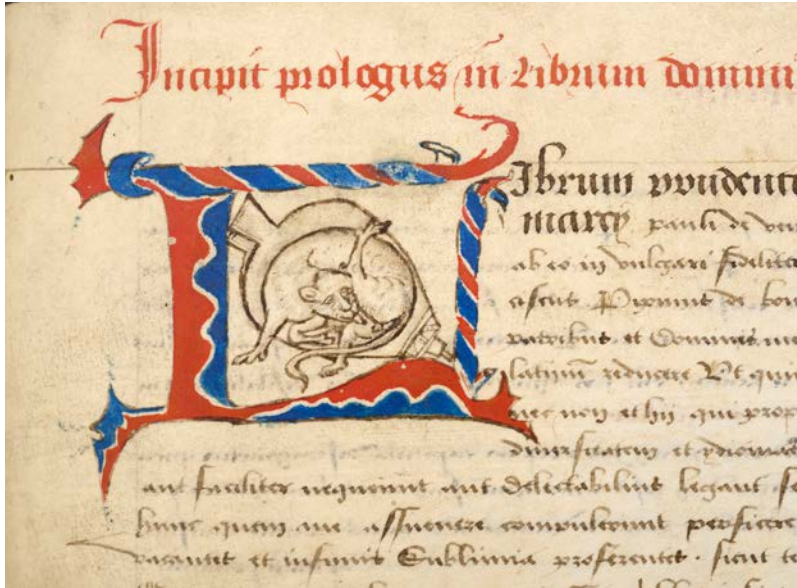 Incipit prologus in librum domini
Librum prudenti
marci pauli de ven
ab eo in vulgari fideliter
Pipinus de bon
patribus et dominis me
latinum reducere Ut qui
nec non et hii qui prop
diversitatem et ydiomat
aut faciliter nequeunt aut delectabilius legant se
hunc quem me assumere compulerunt perficere
vacantes et infimis sublimia proferentes . sicut te